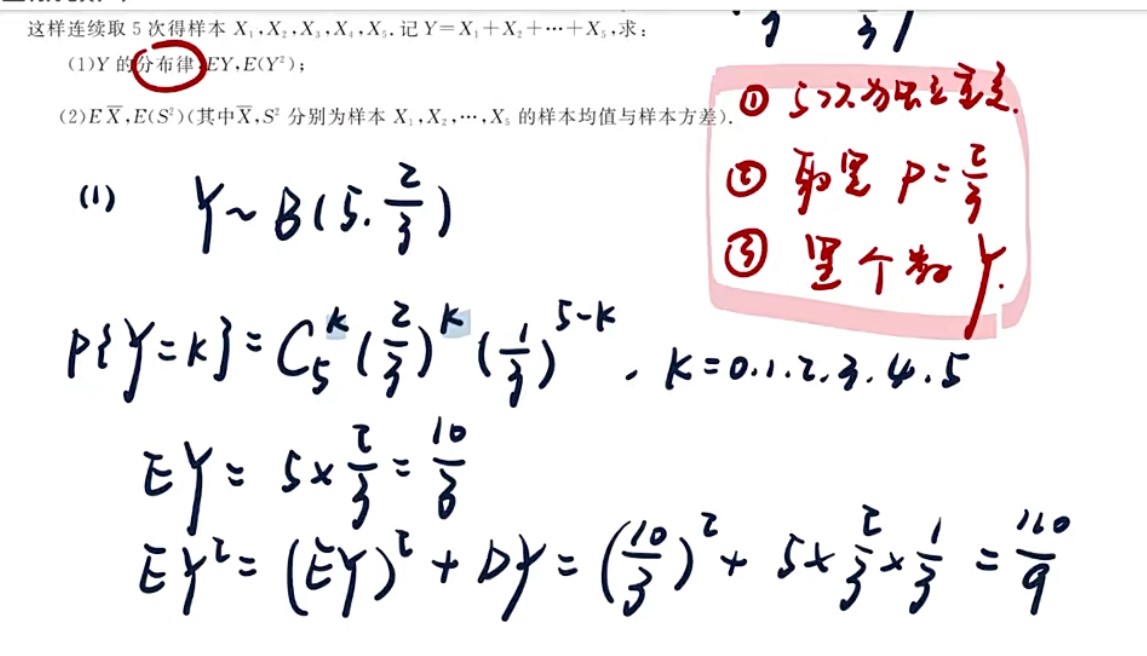 这样连续取 5 次得样本 X₁,X₂,X₃,X₄,X₅.记 Y=X₁+X₂+⋯+X₅,求:
(1)Y 的分布律,EY,E(Y²);
(2)E X̄,E(S²)(其中X̄,S² 分别为样本 X₁,X₂,⋯,X₅ 的样本均值与样本方差).
① 5次为独立重复.
② 取黑 P=2/3
③ 黑个数 Y.
(1) Y~B(5.2/3)
P{Y=K}=C₅ᴷ(2/3)ᴷ(1/3)⁵⁻ᴷ. K=0.1.2.3.4.5
EY=5×2/3=10/3
EY²=(EY)²+DY=(10/3)²+5×2/3×1/3=110/9